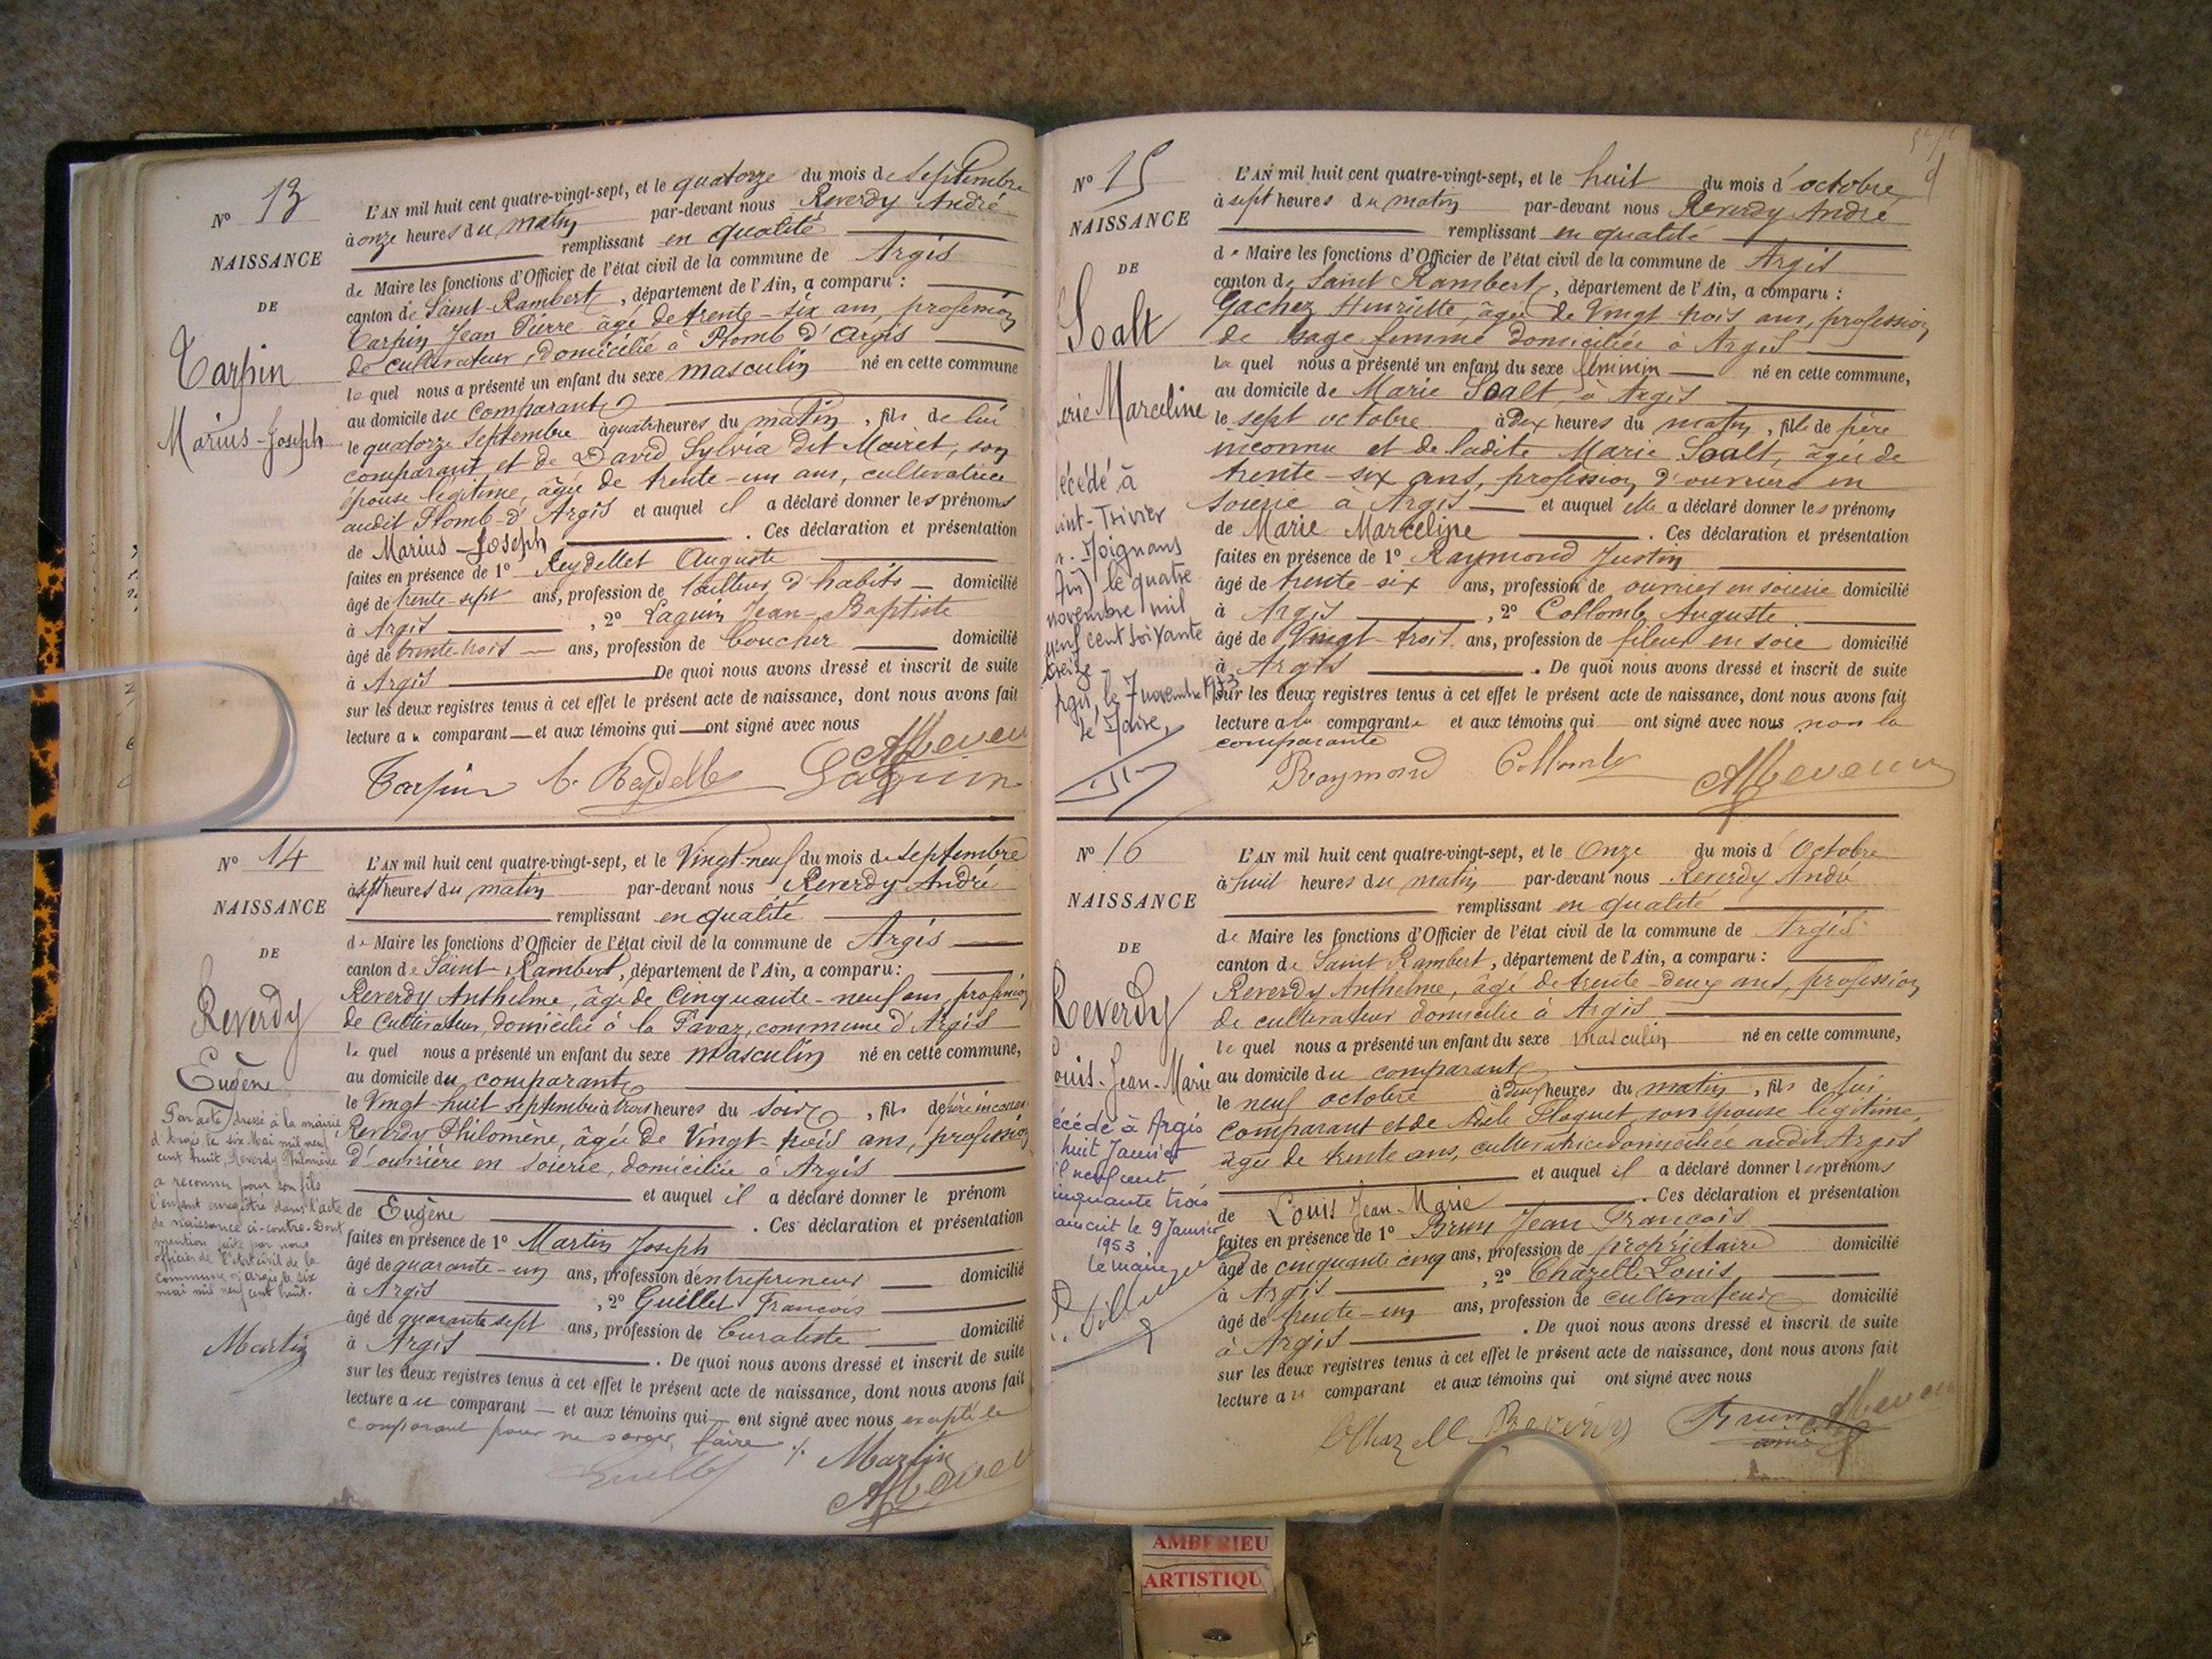 N° 13
NAISSANCE
DE
Tarpin
Marius-Joseph
L'AN mil huit cent quatre-vingt-sept, et le quatorze du mois de Septembre
à onze heures du matin par-devant nous Reverdy André
remplissant en qualité
de Maire les fonctions d'Officier de l'état civil de la commune de Argis
canton de Saint-Rambert, département de l'Ain, a comparu :
Tarpin Jean Pierre âgé de trente-six ans, profession
de cultivateur, domicilié à Plomb d'Argis
le quel nous a présenté un enfant du sexe masculin né en cette commune
au domicile du comparant
le quatorze Septembre à quatre heures du matin, fils de lui
comparant et de David Sylvia dit Moiret, son
épouse légitime, âgée de trente-un ans, cultivatrice
audit Plomb-d'Argis et auquel il a déclaré donner les prénoms
de Marius-Joseph . Ces déclaration et présentation
faites en présence de 1° Reydellet Auguste
âgé de trente-sept ans, profession de tailleur d'habits domicilié
à Argis , 2° Laguin Jean-Baptiste
âgé de trente-trois ans, profession de boucher domicilié
à Argis De quoi nous avons dressé et inscrit de suite
sur les deux registres tenus à cet effet le présent acte de naissance, dont nous avons fait
lecture au comparant et aux témoins qui ont signé avec nous
Tarpin A. Reydellet Laguin
N° 14
NAISSANCE
DE
Reverdy
Eugène
Par acte dressé à la mairie
d'Argis le six Mai mil neuf
cent huit, Reverdy Philomène
a reconnu pour son fils
l'enfant enregistré dans l'acte
de naissance ci-contre. Dont
mention faite par nous
officier de l'état civil de la
commune d'Argis le six
mai mil neuf cent huit.
Martin
L'AN mil huit cent quatre-vingt-sept, et le Vingt-neuf du mois de septembre
à sept heures du matin par-devant nous Reverdy André
remplissant en qualité
de Maire les fonctions d'Officier de l'état civil de la commune de Argis
canton de Saint-Rambert, département de l'Ain, a comparu :
Reverdy Anthelme, âgé de Cinquante-neuf ans, profession
de Cultivateur, domicilié à la Favaz, commune d'Argis
le quel nous a présenté un enfant du sexe masculin né en cette commune,
au domicile du comparant
le Vingt-huit septembre à trois heures du soir, fils de père inconnu
Reverdy Philomène, âgée de Vingt-trois ans, profession
d'ouvrière en soierie, domiciliée à Argis
et auquel il a déclaré donner le prénom
de Eugène . Ces déclaration et présentation
faites en présence de 1° Martin Joseph
âgé de quarante-un ans, profession d'entrepreneur domicilié
à Argis , 2° Guillet François
âgé de quarante sept ans, profession de buraliste domicilié
à Argis . De quoi nous avons dressé et inscrit de suite
sur les deux registres tenus à cet effet le présent acte de naissance, dont nous avons fait
lecture au comparant et aux témoins qui ont signé avec nous excepté le
comparant pour ne savoir faire ./.
Martin
N° 15
NAISSANCE
DE
Soalt
Marceline
écédé à
int-Trivier
Moignans
Ain) le quatre
novembre mil
neuf cent soixante
treize
Argis, le 7 novembre 1973
Le Maire,
L'AN mil huit cent quatre-vingt-sept, et le huit du mois d'octobre
à sept heures du matin par-devant nous Reverdy André
remplissant en qualité
de Maire les fonctions d'Officier de l'état civil de la commune de Argis
canton de Saint Rambert, département de l'Ain, a comparu :
Gachez Henriette, âgée de Vingt trois ans, profession
de sage femme domiciliée à Argis
la quel nous a présenté un enfant du sexe féminin né en cette commune,
au domicile de Marie Soalt, à Argis
le sept octobre à dix heures du matin, fille de père
inconnu et de ladite Marie Soalt, âgée de
trente-six ans, profession d'ouvrière en
soierie à Argis et auquel elle a déclaré donner les prénoms
de Marie Marceline . Ces déclaration et présentation
faites en présence de 1° Raymond Justin
âgé de trente-six ans, profession de ouvrier en soierie domicilié
à Argis , 2° Collomb Auguste
âgé de Vingt-trois ans, profession de fileur en soie domicilié
à Argis . De quoi nous avons dressé et inscrit de suite
sur les deux registres tenus à cet effet le présent acte de naissance, dont nous avons fait
lecture a la comparante et aux témoins qui ont signé avec nous non la
comparante
Raymond Collomb
N° 16
NAISSANCE
DE
Reverdy
Louis-Jean-Marie
écédé à Argis
huit Janvier
il neuf cent
inquante trois
inscrit le 9 Janvier
1953
le maire
L'AN mil huit cent quatre-vingt-sept, et le Onze du mois d'Octobre
à huit heures du matin par-devant nous Reverdy André
remplissant en qualité
de Maire les fonctions d'Officier de l'état civil de la commune de Argis
canton de Saint Rambert, département de l'Ain, a comparu :
Reverdy Anthelme, âgé de trente-deux ans, profession
de cultivateur domicilié à Argis
le quel nous a présenté un enfant du sexe masculin né en cette commune,
au domicile du comparant
le neuf octobre à deux heures du matin, fils de lui
comparant et de Adèle Ploquet son épouse légitime,
âgée de trente ans, cultivatrice domiciliée audit Argis
et auquel il a déclaré donner les prénoms
de Louis Jean-Marie . Ces déclaration et présentation
faites en présence de 1° Brun Jean François
âgé de cinquante cinq ans, profession de propriétaire domicilié
à Argis , 2° Chazelle Louis
âgé de trente-un ans, profession de cultivateur domicilié
à Argis . De quoi nous avons dressé et inscrit de suite
sur les deux registres tenus à cet effet le présent acte de naissance, dont nous avons fait
lecture au comparant et aux témoins qui ont signé avec nous
Chazelle Reverdy Brun
AMBERIEU
ARTISTIQU